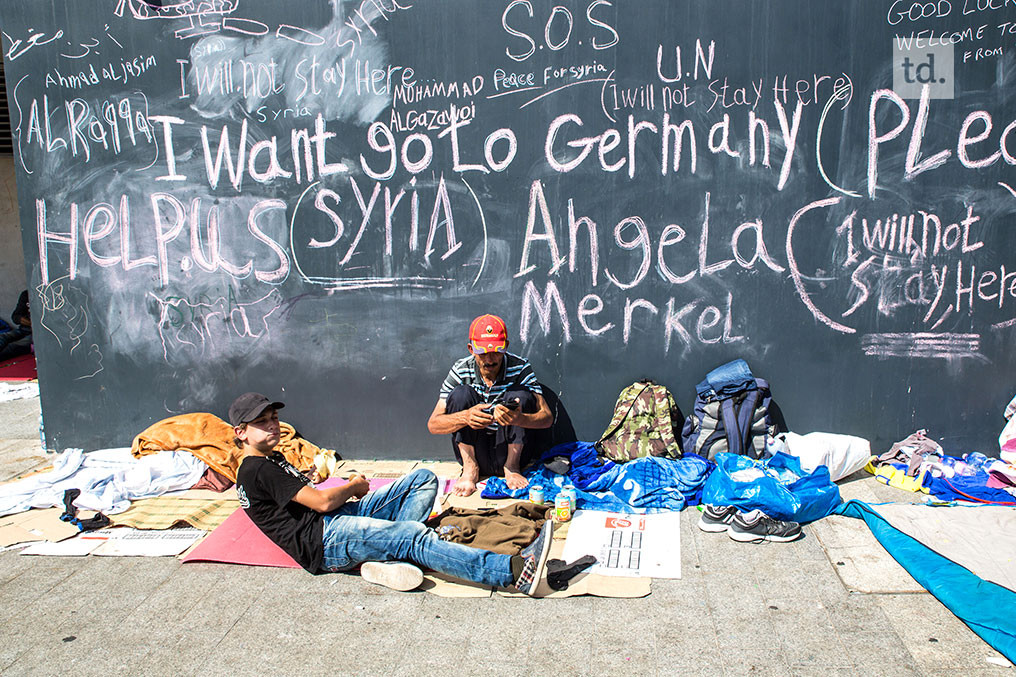 Syria
S.O.S
GOOD LUCK
WELCOME TO
FROM
td.
Ahmad aljasim
Syria
I will not stay Here
MOHAMMAD
ALGAZAWOI
Peace For Syria
U.N
(I will not stay Here)
AL Raqqa
Syria
I Want go to Germany (PLea
HeLp.us (SyriA)
AngeLa
MerkeL
(I will not
Stay, Here
Syria